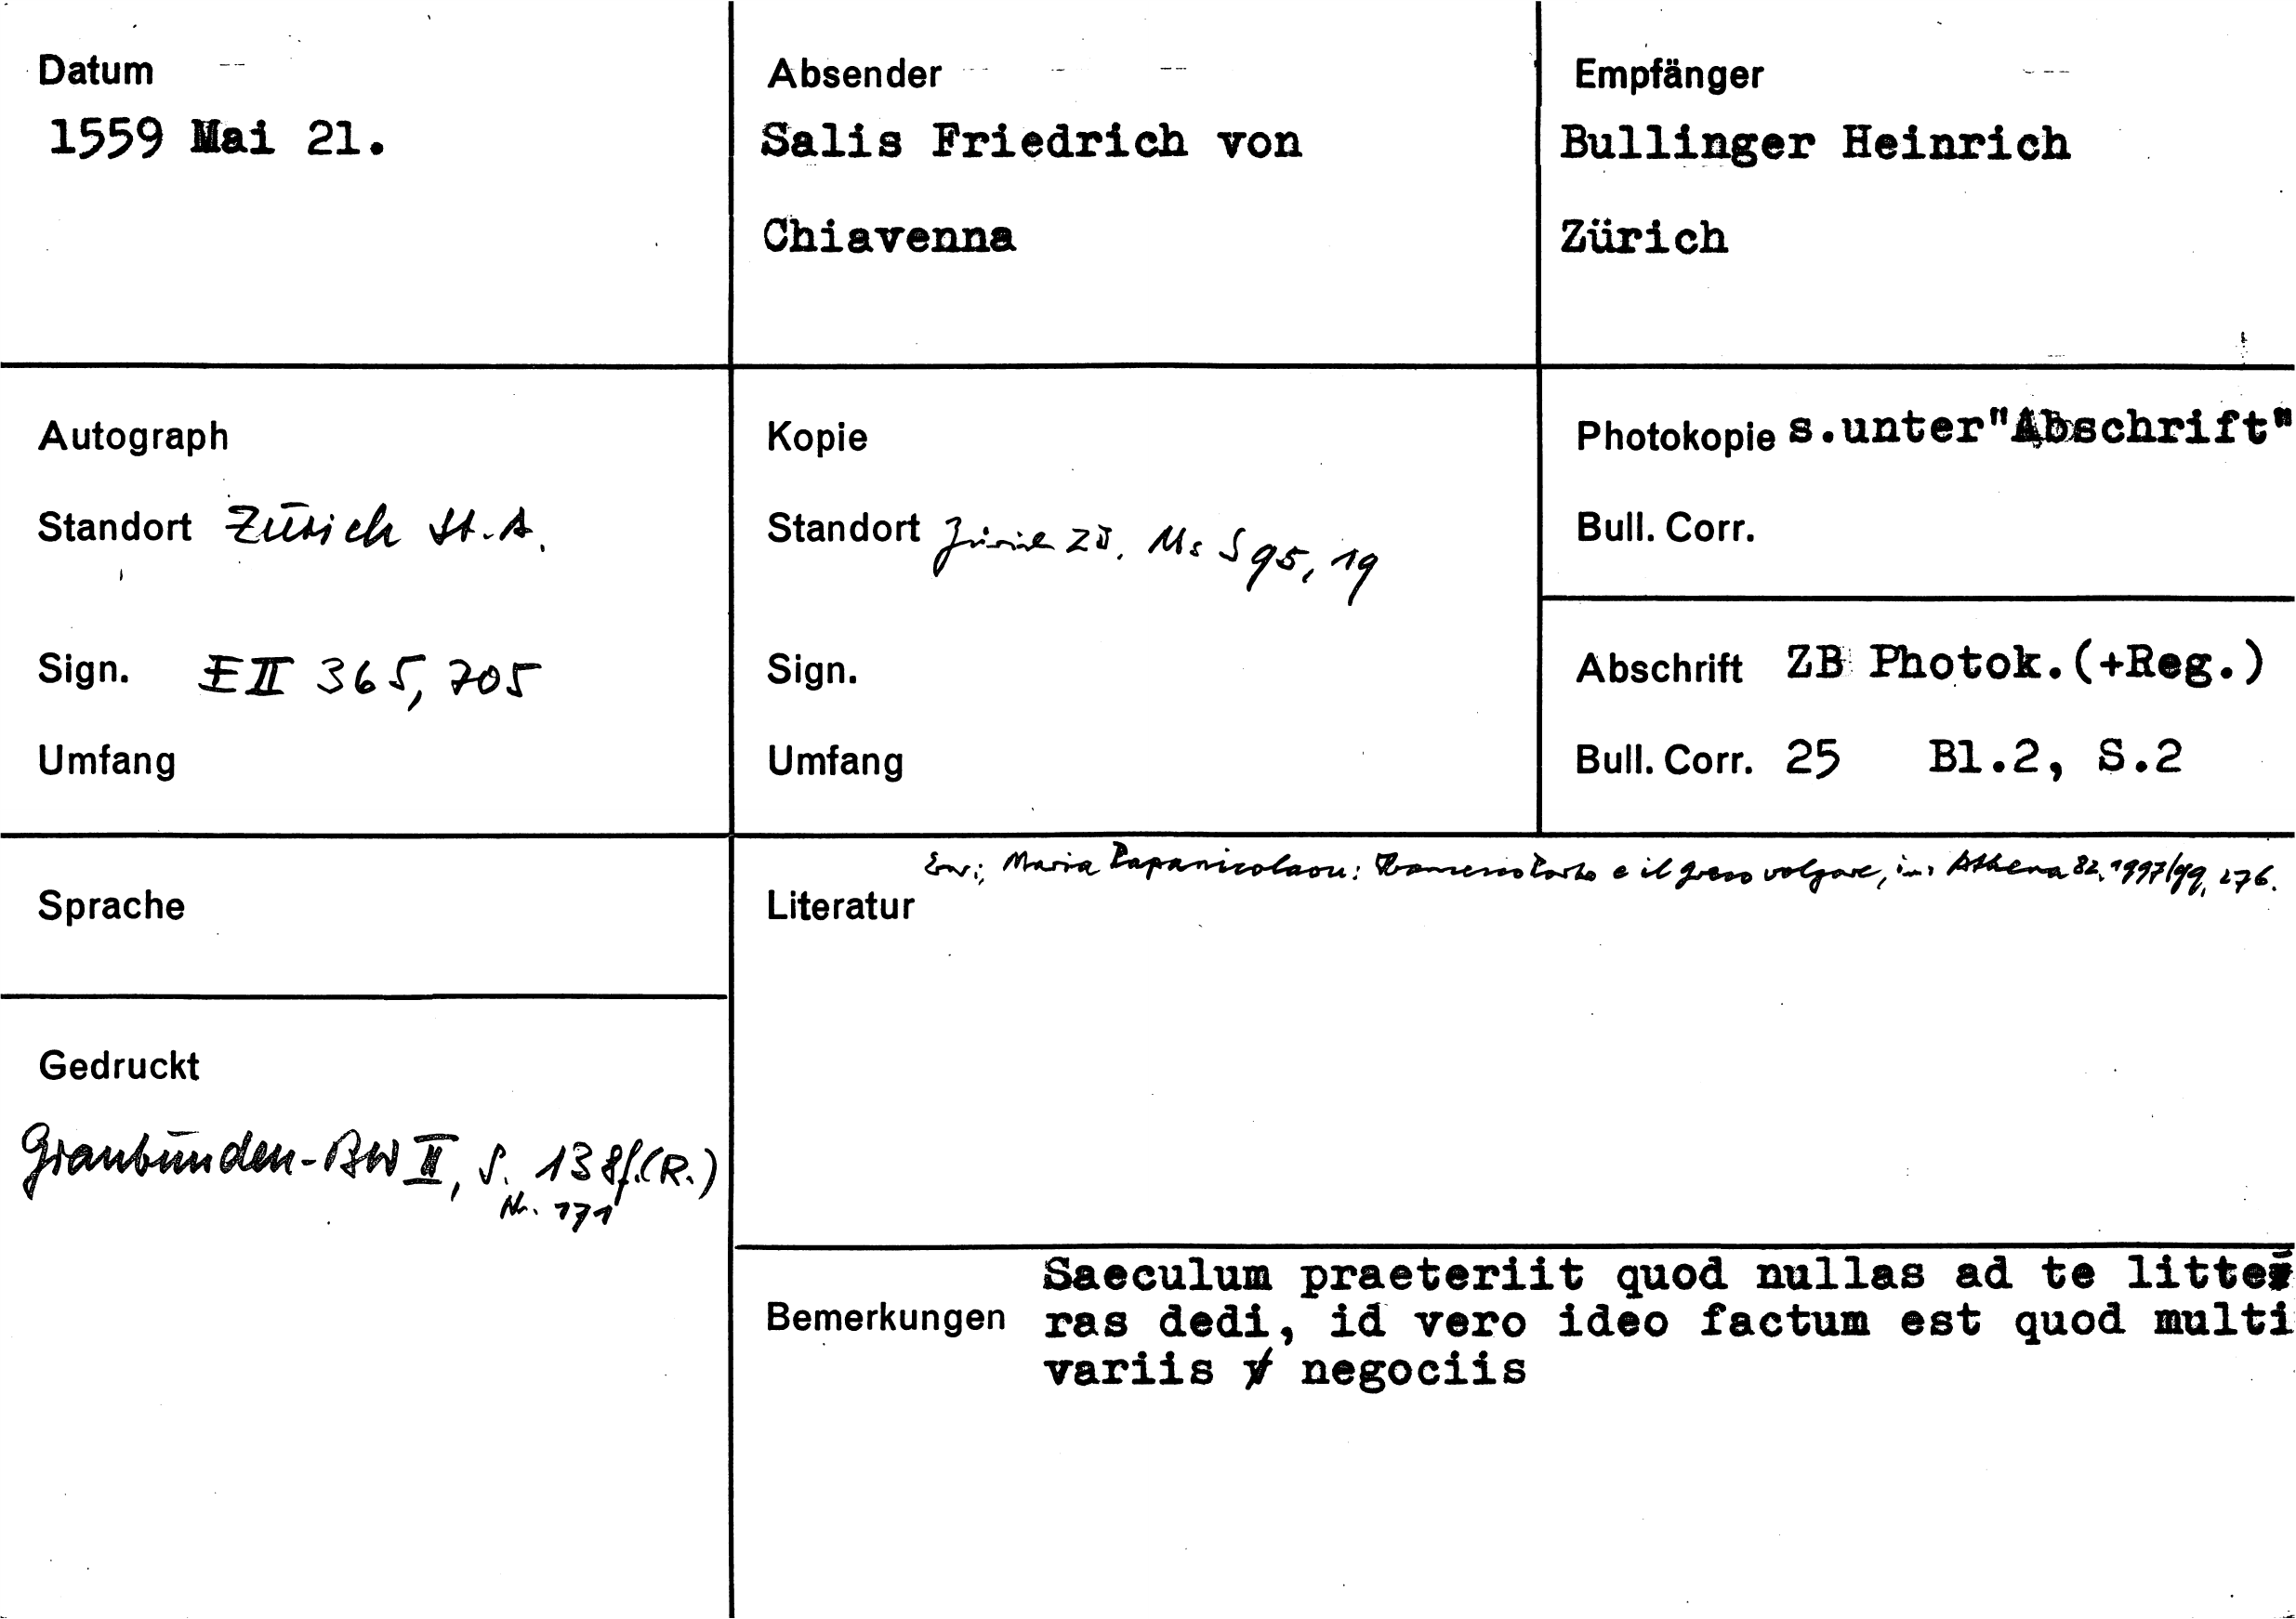 Datum
1559 Mai 21.
Absender
Salis Friedrich von
Chiavenna
Empfänger
Bullinger Heinrich
Zürich
Autograph
Standort Zürich St.A.
Sign. E II 365, 705
Umfang
Kopie
Standort Zürich ZB, Ms S 95, 19
Sign.
Umfang
Photokopie s.unter"Abschrift"
Bull. Corr.
Abschrift ZB Photok.(+Reg.)
Bull. Corr. 25 Bl.2, S.2
Sprache
Gedruckt
Graubünden-BW II, S. 138f.(R.)
Nr. 171
Literatur
Maria Papanicolaou: e il greco volgare, in: Athena 82, 1997/99, 276.
Bemerkungen
Saeculum praeteriit quod nullas ad te litte-
ras dedi, id vero ideo factum est quod multi
variis negociis